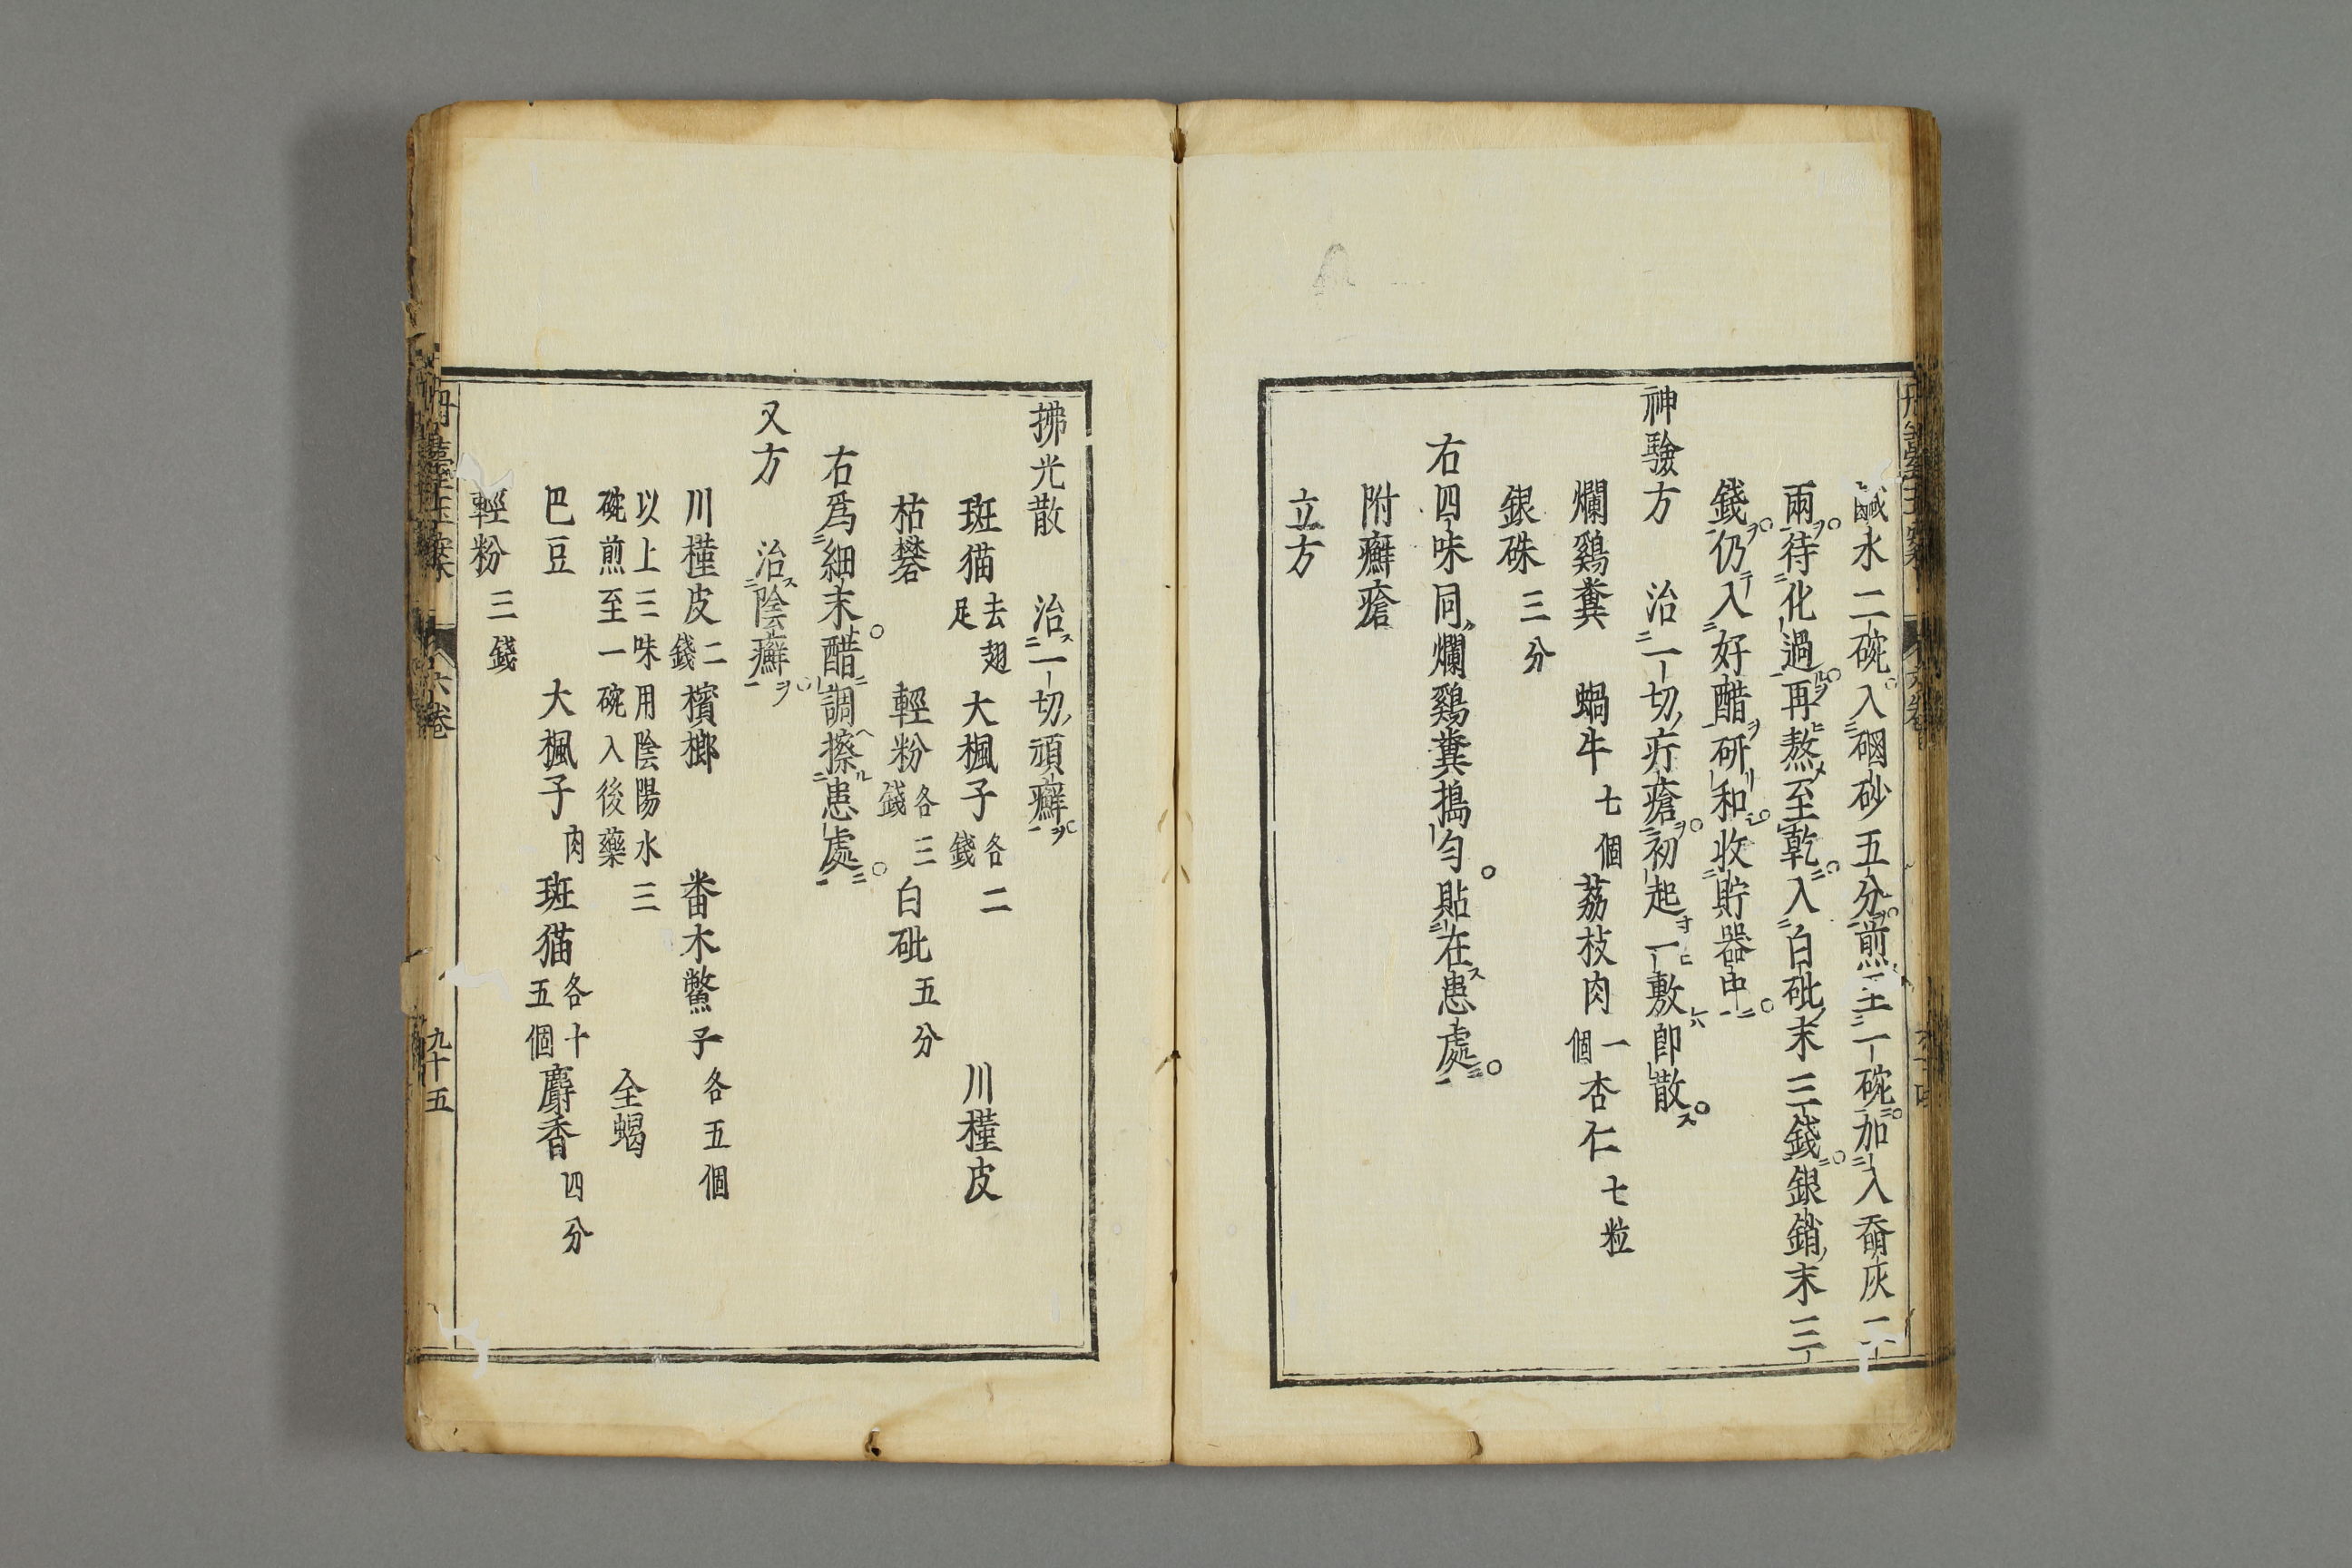 鹹水二碗入硇砂五分煎至一碗加入蕎灰二
兩待化過再熬至乾入白砒末三錢銀銷末三
錢仍入好醋研和收貯器中
神驗方　治一切疔瘡初起一敷即散
爛鷄糞　蝸牛七個　荔枝肉一個　杏仁七粒
銀硃三分
右四味同爛鷄糞搗勻貼在患處
附癬瘡
立方
拂光散　治一切頑癬
斑猫去翅足　大楓子各二錢　川槿皮
枯礬　輕粉各三錢　白砒五分
右爲細末醋調擦患處
又方　治陰癬
川槿皮二錢　檳榔　畨木鱉子各五個
以上三味用陰陽水三碗煎至一碗入後藥　全蝎
巴豆　大楓子肉　斑猫各十五個　麝香四分
輕粉三錢
丹臺玉案　六卷　九十五